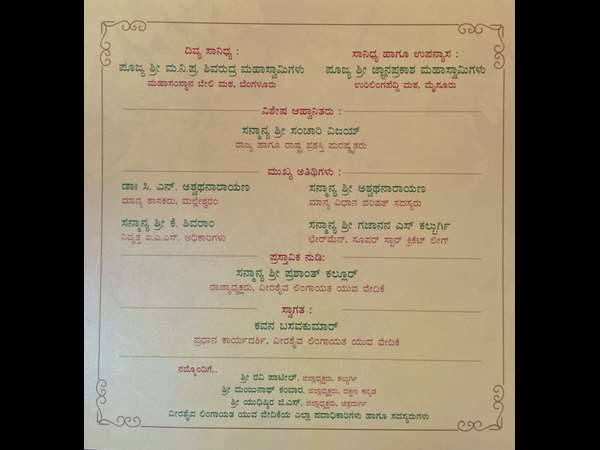 ದಿವ್ಯ ಸಾನಿಧ್ಯ :
ಪೂಜ್ಯ ಶ್ರೀ ಮ.ನಿ.ಪ್ರ. ಶಿವರುದ್ರ ಮಹಾಸ್ವಾಮಿಗಳು
ಮಹಾಸಂಸ್ಥಾನ ಬೇಲಿ ಮಠ, ಬೆಂಗಳೂರು
ಸಾನಿಧ್ಯ ಹಾಗೂ ಉಪನ್ಯಾಸ :
ಪೂಜ್ಯ ಶ್ರೀ ಜ್ಞಾನಪ್ರಕಾಶ ಮಹಾಸ್ವಾಮಿಗಳು
ಉರಿಲಿಂಗಪೆದ್ದಿ ಮಠ, ಮೈಸೂರು
ವಿಶೇಷ ಆಹ್ವಾನಿತರು :
ಸನ್ಮಾನ್ಯ ಶ್ರೀ ಸಂಚಾರಿ ವಿಜಯ್
ರಾಜ್ಯ ಹಾಗೂ ರಾಷ್ಟ್ರ ಪ್ರಶಸ್ತಿ ಪುರಷ್ಕೃತರು
ಮುಖ್ಯ ಅತಿಥಿಗಳು :
ಡಾ: ಸಿ. ಎನ್. ಅಶ್ವಥನಾರಾಯಣ
ಮಾನ್ಯ ಶಾಸಕರು, ಮಲ್ಲೇಶ್ವರಂ
ಸನ್ಮಾನ್ಯ ಶ್ರೀ ಅಶ್ವಥನಾರಾಯಣ
ಮಾನ್ಯ ವಿಧಾನ ಪರಿಷತ್ ಸದಸ್ಯರು
ಸನ್ಮಾನ್ಯ ಶ್ರೀ ಕೆ. ಶಿವರಾಂ
ನಿವೃತ್ತ ಐ.ಎ.ಎಸ್. ಅಧಿಕಾರಿಗಳು
ಸನ್ಮಾನ್ಯ ಶ್ರೀ ಗಜಾನನ ಎಸ್ ಕಲ್ಬುರ್ಗಿ
ಛೇರ್‌ಮೆನ್, ಸೂಪರ್ ಸ್ಟಾರ್ ಕ್ರಿಕೆಟ್ ಲೀಗ್
ಪ್ರಸ್ತಾವಿಕ ನುಡಿ:
ಸನ್ಮಾನ್ಯ ಶ್ರೀ ಪ್ರಶಾಂತ್ ಕಲ್ಲೂರ್
ರಾಜ್ಯಾಧ್ಯಕ್ಷರು, ವೀರಶೈವ ಲಿಂಗಾಯತ ಯುವ ವೇದಿಕೆ
ಸ್ವಾಗತ :
ಕವನ ಬಸವಕುಮಾರ್
ಪ್ರಧಾನ ಕಾರ್ಯದರ್ಶಿ, ವೀರಶೈವ ಲಿಂಗಾಯತ ಯುವ ವೇದಿಕೆ
ನಮ್ಮೊಂದಿಗೆ...
ಶ್ರೀ ರವಿ ಪಾಟೀಲ್, ಜಿಲ್ಲಾಧ್ಯಕ್ಷರು, ಕಲ್ಬುರ್ಗಿ
ಶ್ರೀ ಮಂಜುನಾಥ್ ಕಂಬಾರ, ಜಿಲ್ಲಾಧ್ಯಕ್ಷರು, ದಕ್ಷಿಣ ಕನ್ನಡ
ಶ್ರೀ ಯುಧಿಷ್ಠಿರ ಜಿ.ಎಸ್. ಜಿಲ್ಲಾಧ್ಯಕ್ಷರು, ಚಿತ್ರದುರ್ಗ
ವೀರಶೈವ ಲಿಂಗಾಯತ ಯುವ ವೇದಿಕೆಯ ಎಲ್ಲಾ ಪದಾಧಿಕಾರಿಗಳು ಹಾಗೂ ಸದಸ್ಯರುಗಳು